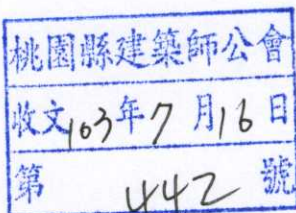 桃園縣建築師公會
收文103年7月16日
第442號